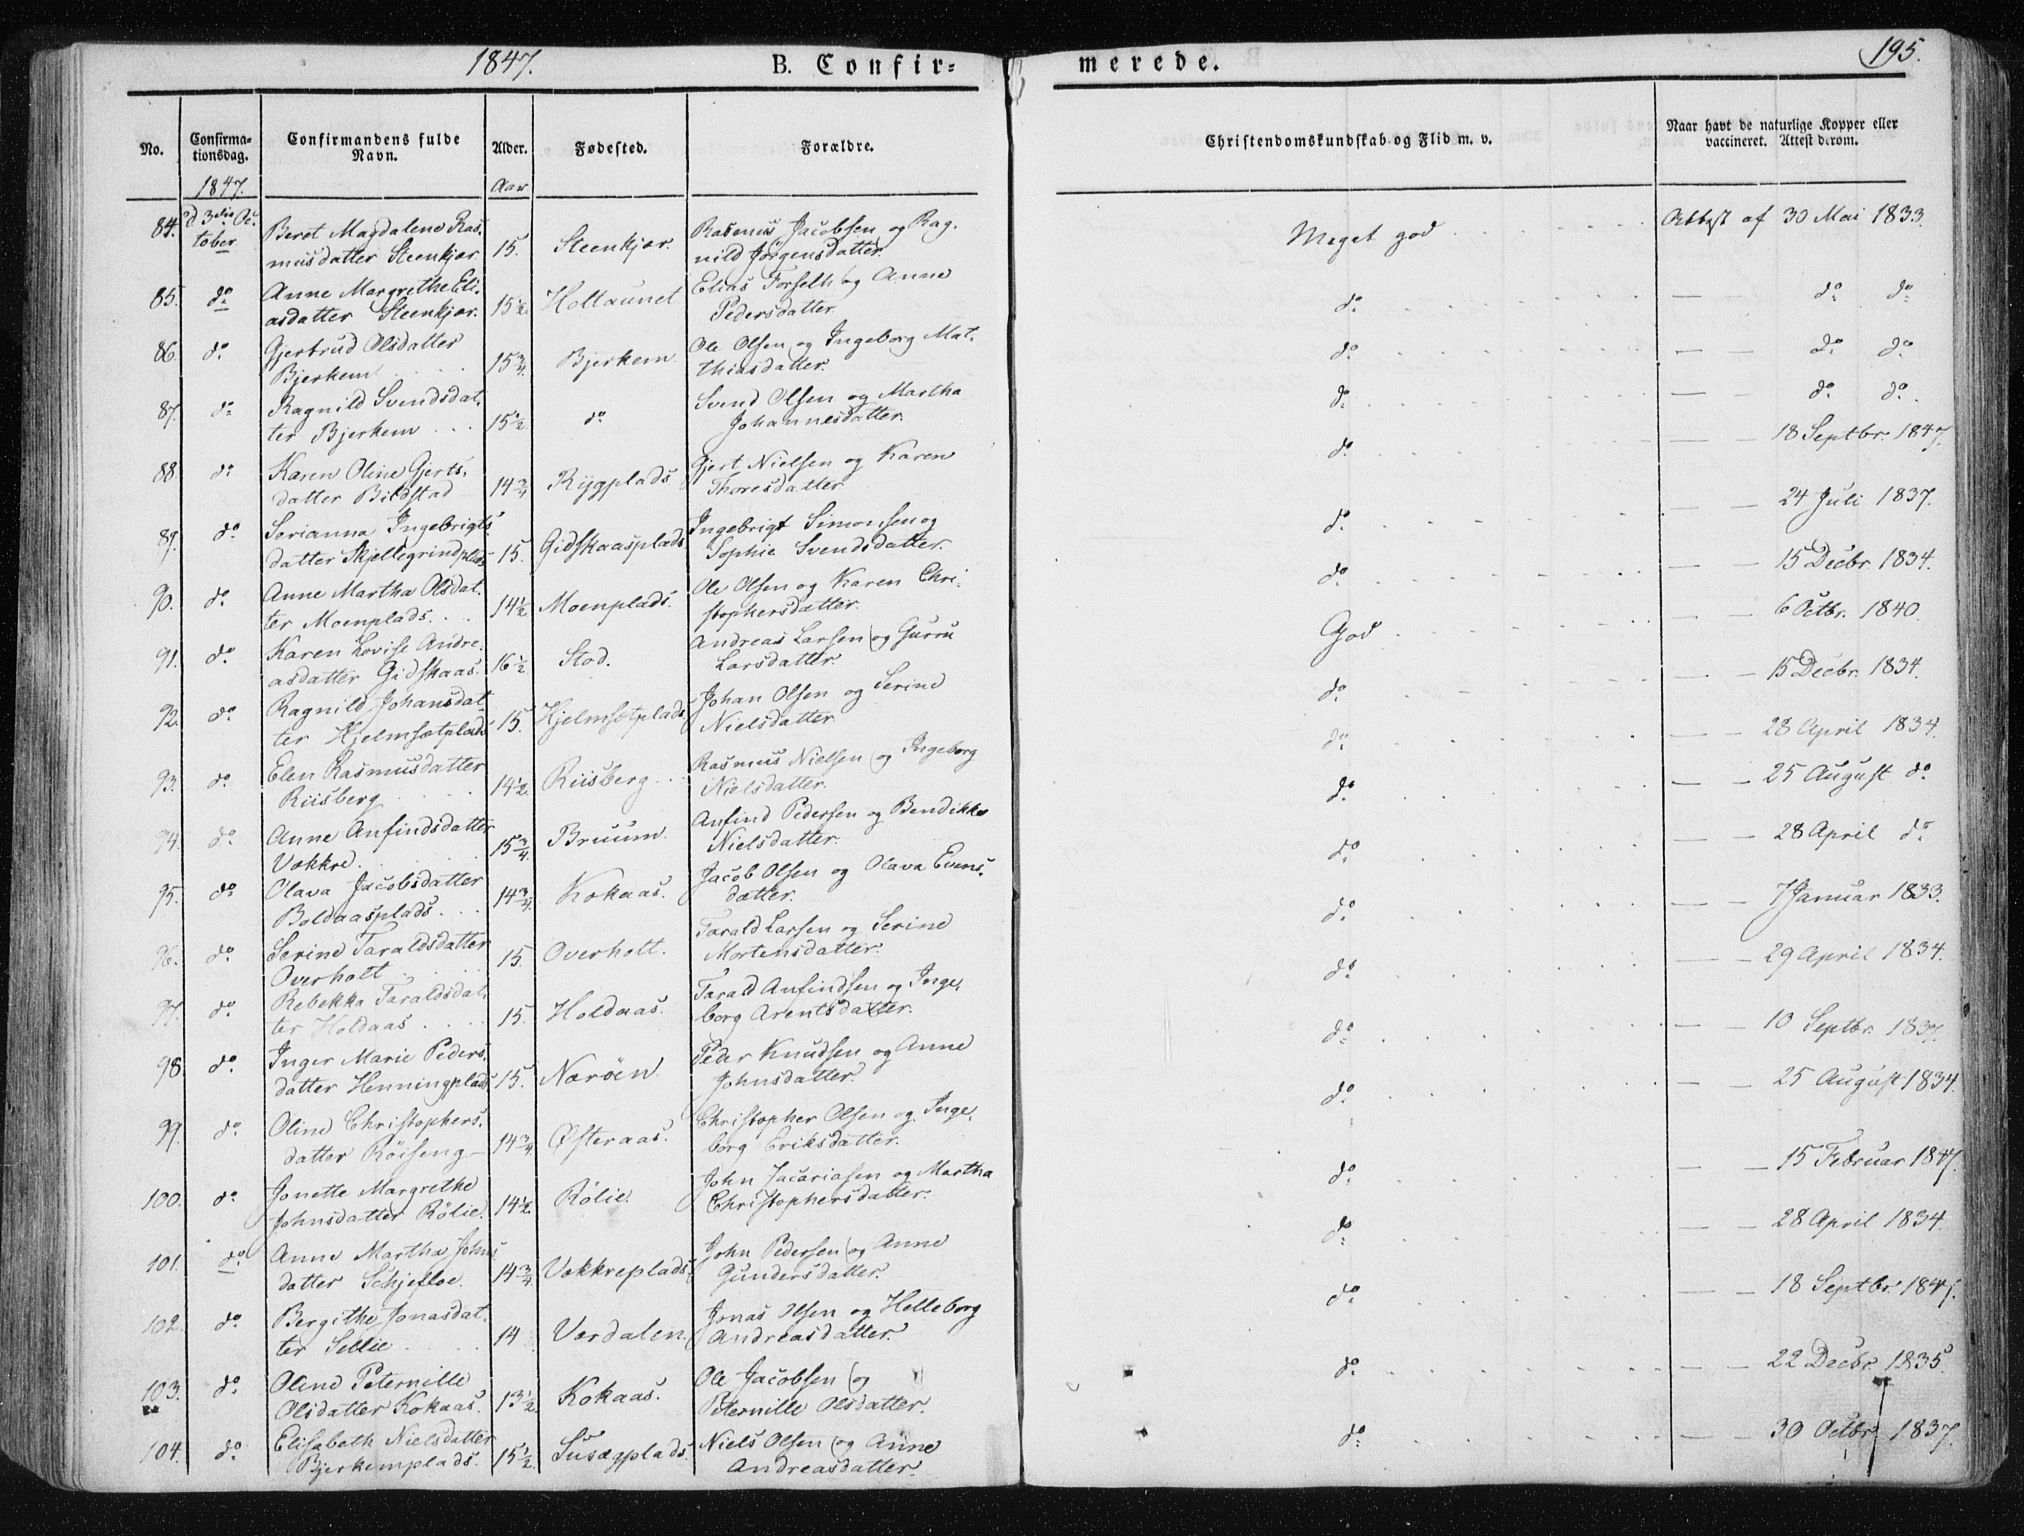 1847.
B. Confir=
merede.
195.
No.
Confirma-
tionsdag.
Confirmandens fulde
Navn.
Alder.
Fødested.
Forældre.
Christendomskundskab og Flid m. v.
Naar havt de naturlige Kopper eller
vaccineret. Attest derom.
1847.
Aar
84. d. 3die Oc-
tober
Beret Magdalene Ras-
musdatter Steenkjær
15. Steenkjær.
Rasmus Jacobsen og Rag-
nild Jørgensdatter.
Meget god
Attest af 30 Mai 1833.
85. do
Anne Margrethe Eli-
asdatter Steenkjær.
15½ Holtaunet
Elias Forseth og Anne
Pedersdatter
do
— — do do
86. do
Gjertrud Olsdatter
Bjerkem
15¾ Bjerkem.
Ole Olsen og Ingeborg Mat-
thiasdatter.
do
— — do do
87. do
Ragnild Svendsdat-
ter Bjerkem
15½ do
Svend Olsen og Martha
Johannesdatter.
do
— — do do.
88. do
Karen Oline Gjerts-
datter Bildstad
14¾ Rygplads
Gjert Nielsen og Karen
Thoresdatter
do
— — 18 Septbr. 1847.
89. do
Serianna Ingebrigts
datter Skjellegrindplads
15. Gidskaasplads
Ingebrigt Simonsen og
Sophie Svendsdatter.
do
— — 24 Juli 1837.
90. do
Anne Martha Olsdat-
ter Moenplads.
14½ Moenplads.
Ole Olsen og Karen Chri-
stophersdatter.
do
— — 15 Decbr. 1834.
91. do
Karen Lovise Andre-
asdatter Gidskaas.
16½ Stod.
Andreas Larsen og Gurru
Larsdatter.
God
— — 6 Octbr. 1840.
92. do
Ragnild Johansdat-
ter Hjelmsætplads
15. Hjelmsætplads
Johan Olsen og Serine
Nielsdatter
do
— — 15 Decbr. 1834.
93. do
Elen Rasmusdatter
Riisberg
14½ Riisberg
Rasmus Nielsen og Ingeborg
Nielsdatter.
do
— — 28 April 1834.
94. do
Anne Anfindsdatter
Vokkre.
15¾ Bruum.
Anfind Pedersen og Bendikke
Nielsdatter.
do
— — 25 August do
95. do
Olava Jacobsdatter
Boldaasplads.
14¾ Kokaas.
Jacob Olsen og Olava Evens-
datter.
do
— — 28 April do
96. do
Serine Taraldsdatter
Overholt
15. Overholt.
Tarald Larsen og Serine
Mortensdatter.
do
— — 7 Januar 1833.
97. do
Rebekka Taraldsdat-
ter Holdaas
15. Holdaas.
Tarald Anfindsen og Inge-
borg Arentsdatter.
do
— — 29 April 1834.
98. do
Inger Marie Peders-
datter Henningplads
15. Nærøen.
Peder Knudsen og Anne
Johnsdatter.
do
— — 10 Septbr. 1837.
99. do
Oline Christophers-
datter Röiseng
14¾ Østeraas.
Christopher Olsen og Inge-
borg Eriksdatter.
do
— — 25 August 1834.
100. do
Jonette Margrethe
Johnsdatter Rölie.
14½ Rölie.
John Jacariasen og Martha
Christophersdatter.
do
— — 15 Februar 1847.
101. do
Anne Martha Johns
datter Schjefloe.
14¾ Vokkreplads
John Pedersen og Anne
Gundersdatter.
do
— — 28 April 1834.
102. do
Bergithe Jonasdat-
ter Sellie
14 Værdalen.
Jonas Olsen og Helleborg
Andreasdatter.
do
— — 18 Septbr. 1847.
103. do
Oline Peternille
Olsdatter Kokaas.
13½ Kokaas.
Ole Jacobsen og
Peternille Olsdatter.
do
— — 22 Decbr. 1835
104. do
Elisabeth Nielsdatter
Bjerkemplads.
15½ Susægplads.
Niels Olsen og Anne
Andreasdatter.
do
— — 30 Octbr. 1837.